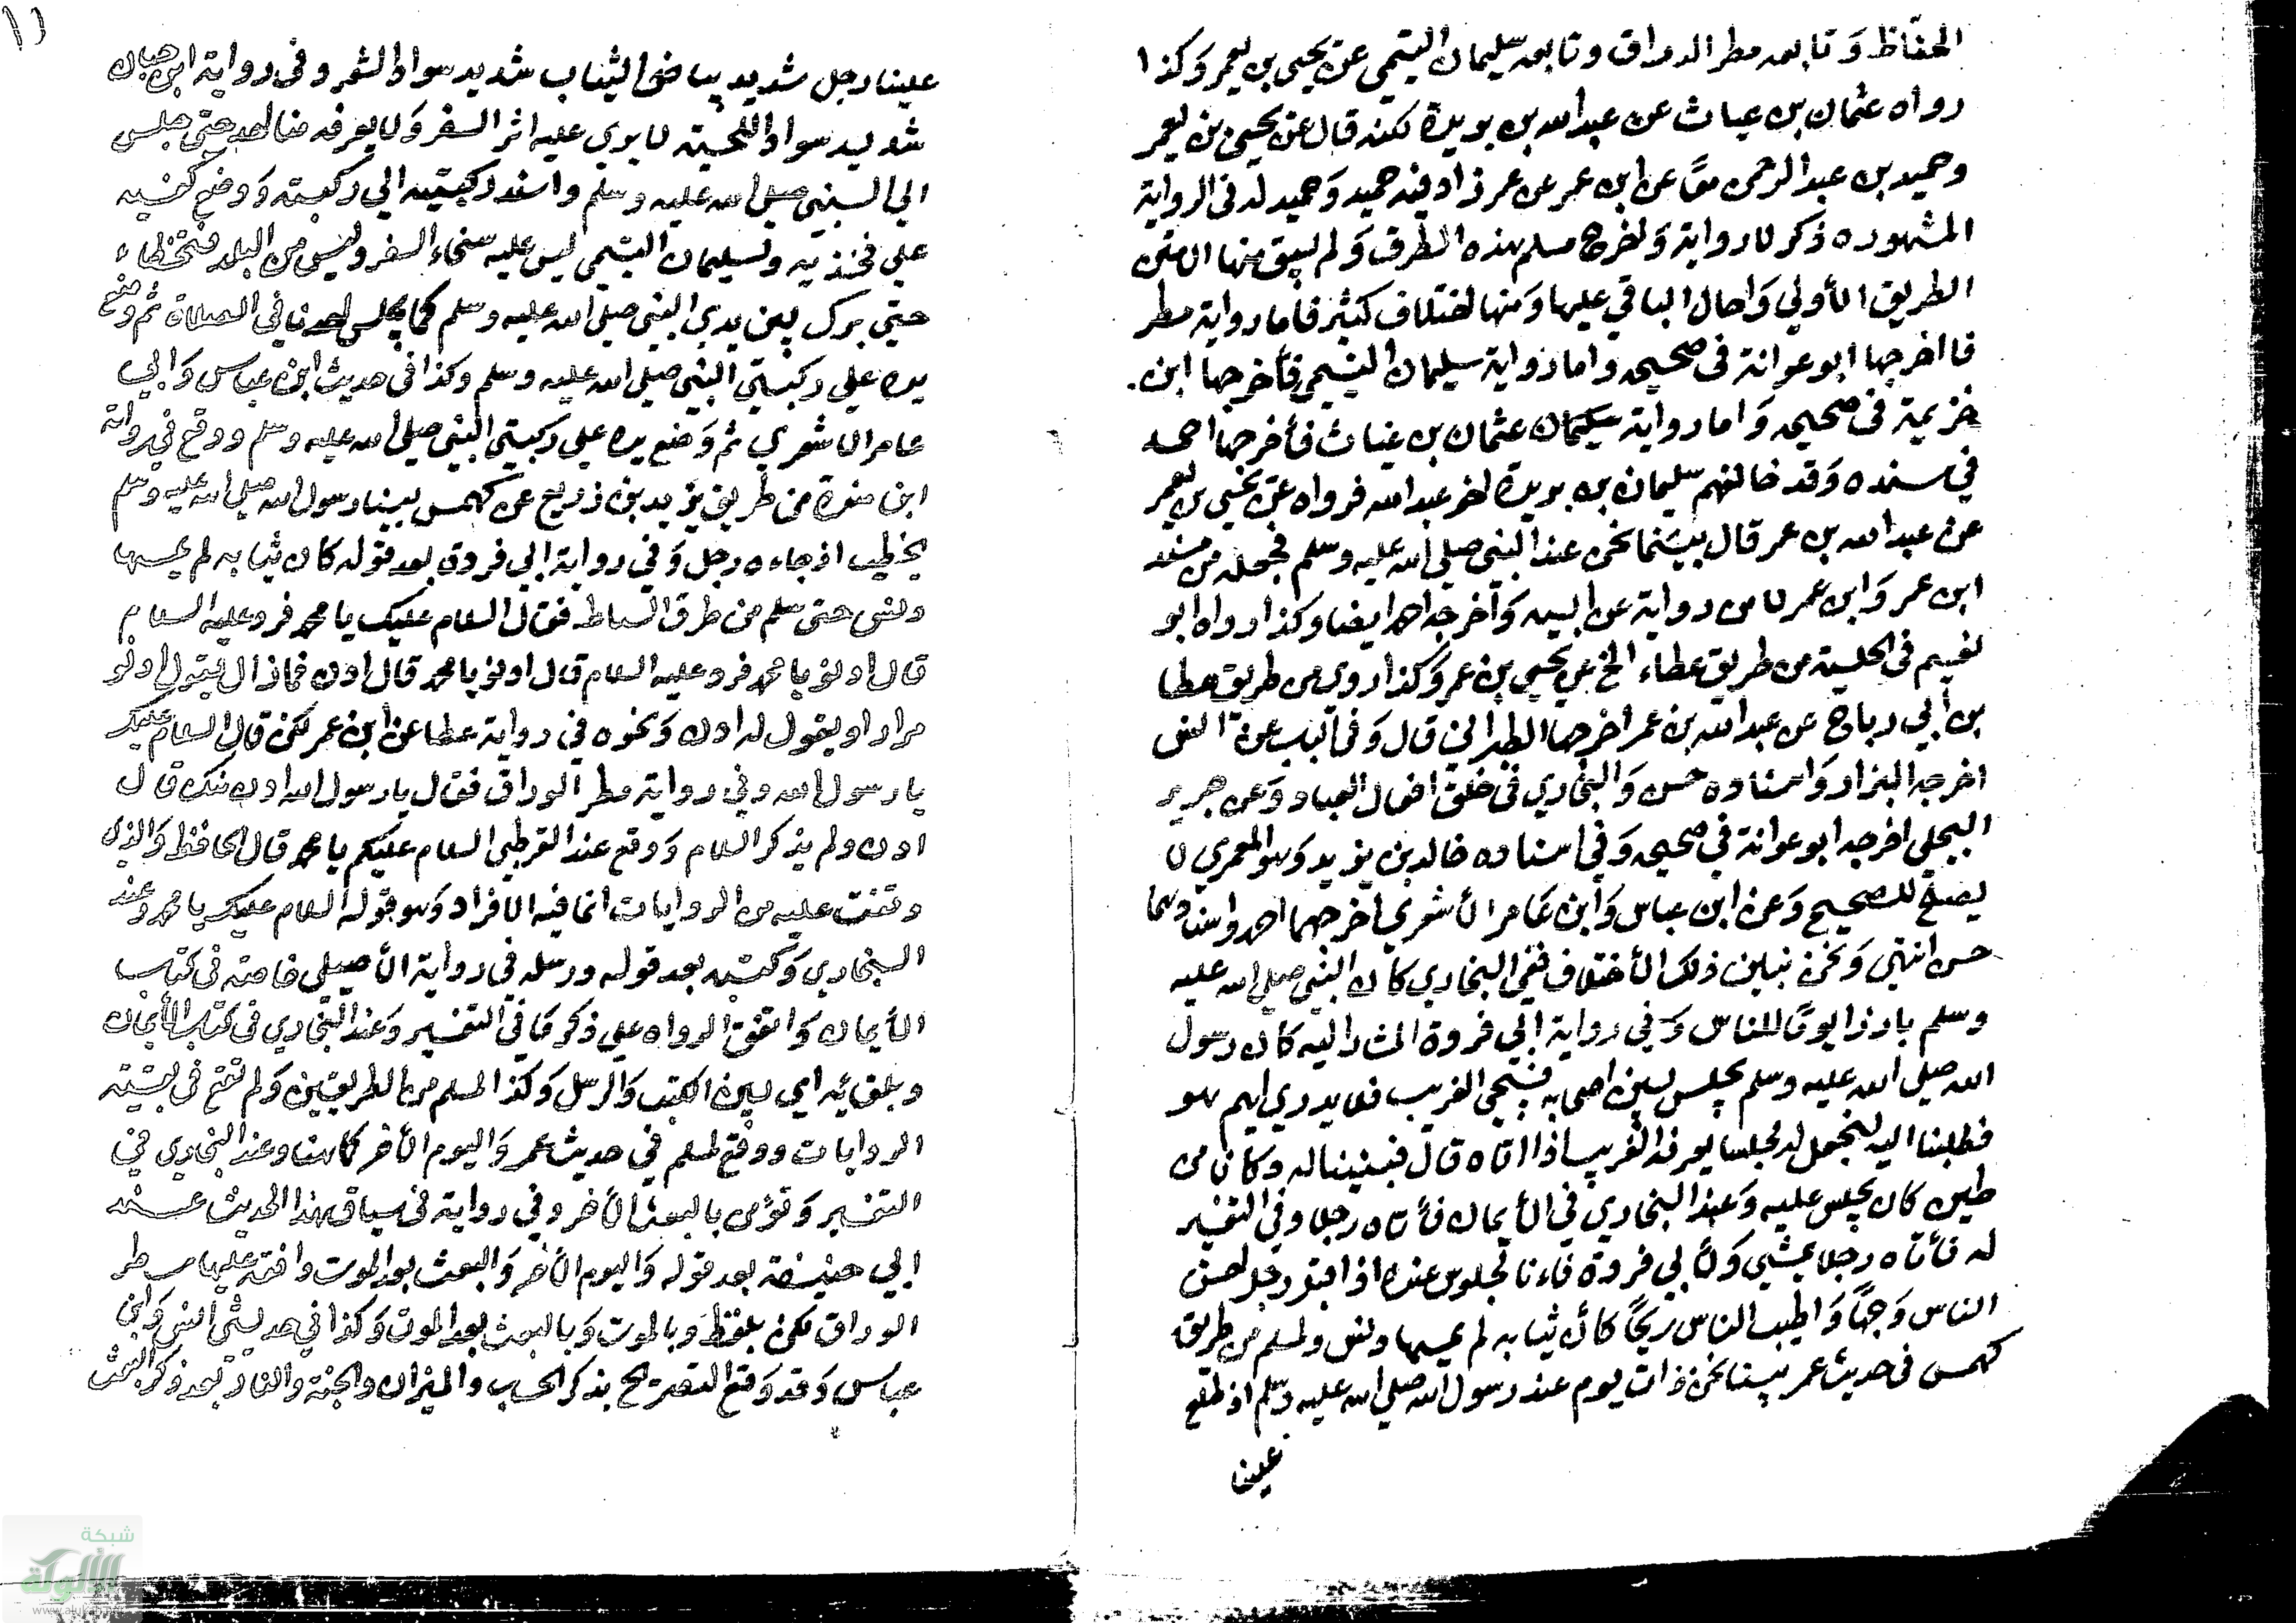 الحفّاظ وَتابعه مطر الوراق وتابعه سليمان التيمي عن يحيى بن يعمر وَكذا
رواه عثمان بن غياث عن عبدالله بن بريدة لكنه قال عن يحيى بن يعمر
وحميد بن عبد الرحمن معًا عن ابن عمر عن عمر زاد فيه حميد وَحميد له في الرواية
المشهوره ذكر لا رواية وَاخرج مسلم هذه الطرق وَلم يسق منها الا متن
الطريق الأولي وَاحال الباقي عليها وَمنها اختلاف كثير فأما رواية مطر
فاخرجها ابو عوانة في صحيحه واما رواية سليمان التيمي فأخرجها ابن
خزيمة في صحيحه وَاما رواية عثمان بن غياث فأخرجها احمد
في سنده وَقد خالفهم سليمان بن بريدة اخو عبدالله فرواه عن يحيى بن يعمر
عن عبدالله بن عمر قال بينما نحن عند النبي صلي الله عليه وسلم فجعله من مسند
ابن عمر وَابن عمر لا من رواية عن ابيه وَأخرجه احمد ايضا وكذا رواه ابو
نعيم في الحلية من طريق عطاء الخ عن يحيى بن يعمر وَكذا روي من طريق عطا
بن أبي رباح عن عبدالله بن عمر اخرجها الطبراني قال وَفي الباب عن انس
اخرجه البزار وَاسناده حسن وَالبخاري في خلق افعال العباد وَعن جرير
البجلي اخرجه ابو عوانة في صحيحه وَفي اسناده خالد بن يزيد وَهو العمري لا
يصلح للصحيح وَعن ابن عباس وَابن عَامر الأشعري اخرجهما احمد واسنادهما
حسن انتهى وَنحن نبين ذلك الأختلاف ففي البخاري كان النبي صلي الله عليه
وسلم بارزا يومًا للناس وَفي رواية ابي فروة المشار اليه كان رسول
الله صلي الله عليه وسلم يجلس بين اصحابه فيجئ الغريب فلا يدري ايهم هو
فطلبنا اليه لنجعل له مجلسا يعرفه الغريب اذا اتاه قال فبنينا له دكانا من
طين كان يجلس عليه وَعند البخاري في الأيمان فأتاه رجل وفي التفسير
له فأتاه رجل يمشي وَلأبي فروة فاءنا لجلوس عنده اذ اقبل رجل احسن
الناس وَجهًا وَاطيب الناس ريحًا كأن ثيابه لم يمسها دنس ولمسلم من طريق
كهمس في حديث عمر بينا نحن ذات يوم عند رسول الله صلي الله عليه وسلم اذ طلع
علينا
١١
علينا رجل شديد بياض الثياب شديد سواد الشعر وفي رواية ابن حبان
شديد سواد اللحية لا يري عليه اثر السفر وَلا يعرفه منا احد حتى جلس
الي النبي صلي الله عليه وسلم واسند ركبتيه الي ركبتيه وَوضع كفيه
علي فخذيه ولسليمان التيمي ليس عليه سحناء السفر وليس من البلد فتخطاء
حتي برك بين يدي النبي صلي الله عليه وسلم كما يجلس احدنا في الصلاة ثم وضع
يده علي ركبتي النبي صلي الله عليه وسلم وكذا في حديث ابن عباس وَابي
عامر الاشعري ثم وَضع يده علي ركبتي النبي صلي الله عليه وسلم ووقع في رواية
ابن مندة من طريق يزيد بن زريع عن كهمس بينا رسول الله صلي الله عليه وسلم
يخطب اذ جاءه رجل وَفي رواية ابي فروة بعد قوله كان ثيابه لم يمسها
دنس حتى سلم من طرف البساط فقال السلام عليك يا محمد فرد عليه السلام
قال ادنو يا محمد فرد عليه السلام قال ادنو يا محمد قال ادن فما زال يقول ادنو
مرارا ويقول له ادن وَنحوه في رواية عطا عن ابن عمر لكن قال السلام عليك
يا رسول الله وفي رواية مطر الوراق فقال يا رسول الله ادن منك قال
ادن ولم يذكر السلام وَوقع عند القرطبي السلام عليكم يا محمد قال الحافظ وَالذي
وقفت عليه من الروايات انما فيه الافراد وَهو قوله السلام عليك يا محمد وعند
البخاري وَكتبه بعد قوله ورسله في رواية الأصيلي خاصة في كتاب
الأيمان وَاتفق الرواه علي ذكرها في التفسير وَعند البخاري في كتاب الأيمان
وبلقائه اي بين الكتب وَالرسل وَكذا لمسلم من الطريقين وَلم تقع في بقية
الروايات ووقع لمسلم في حديث عمر وَاليوم الأخر كما هنا وعند البخاري في
التفسير وَتؤمن بالبعث الأخر وفي رواية في سياق هذا الحديث عند
ابي حنيفة بعد قوله وَاليوم الأخر وَالبعث بعد الموت وافقه عليها مطر
الوراق لكن بلفظ وبالموت وَبالبعث بعد الموت وَكذا في حديثي انس وَابن
عباس وَقد وَقع التصريح بذكر الحساب والميزان والجنة والنار بعد ذكر البعث
شبكة
الألوكة
www.alukah.net